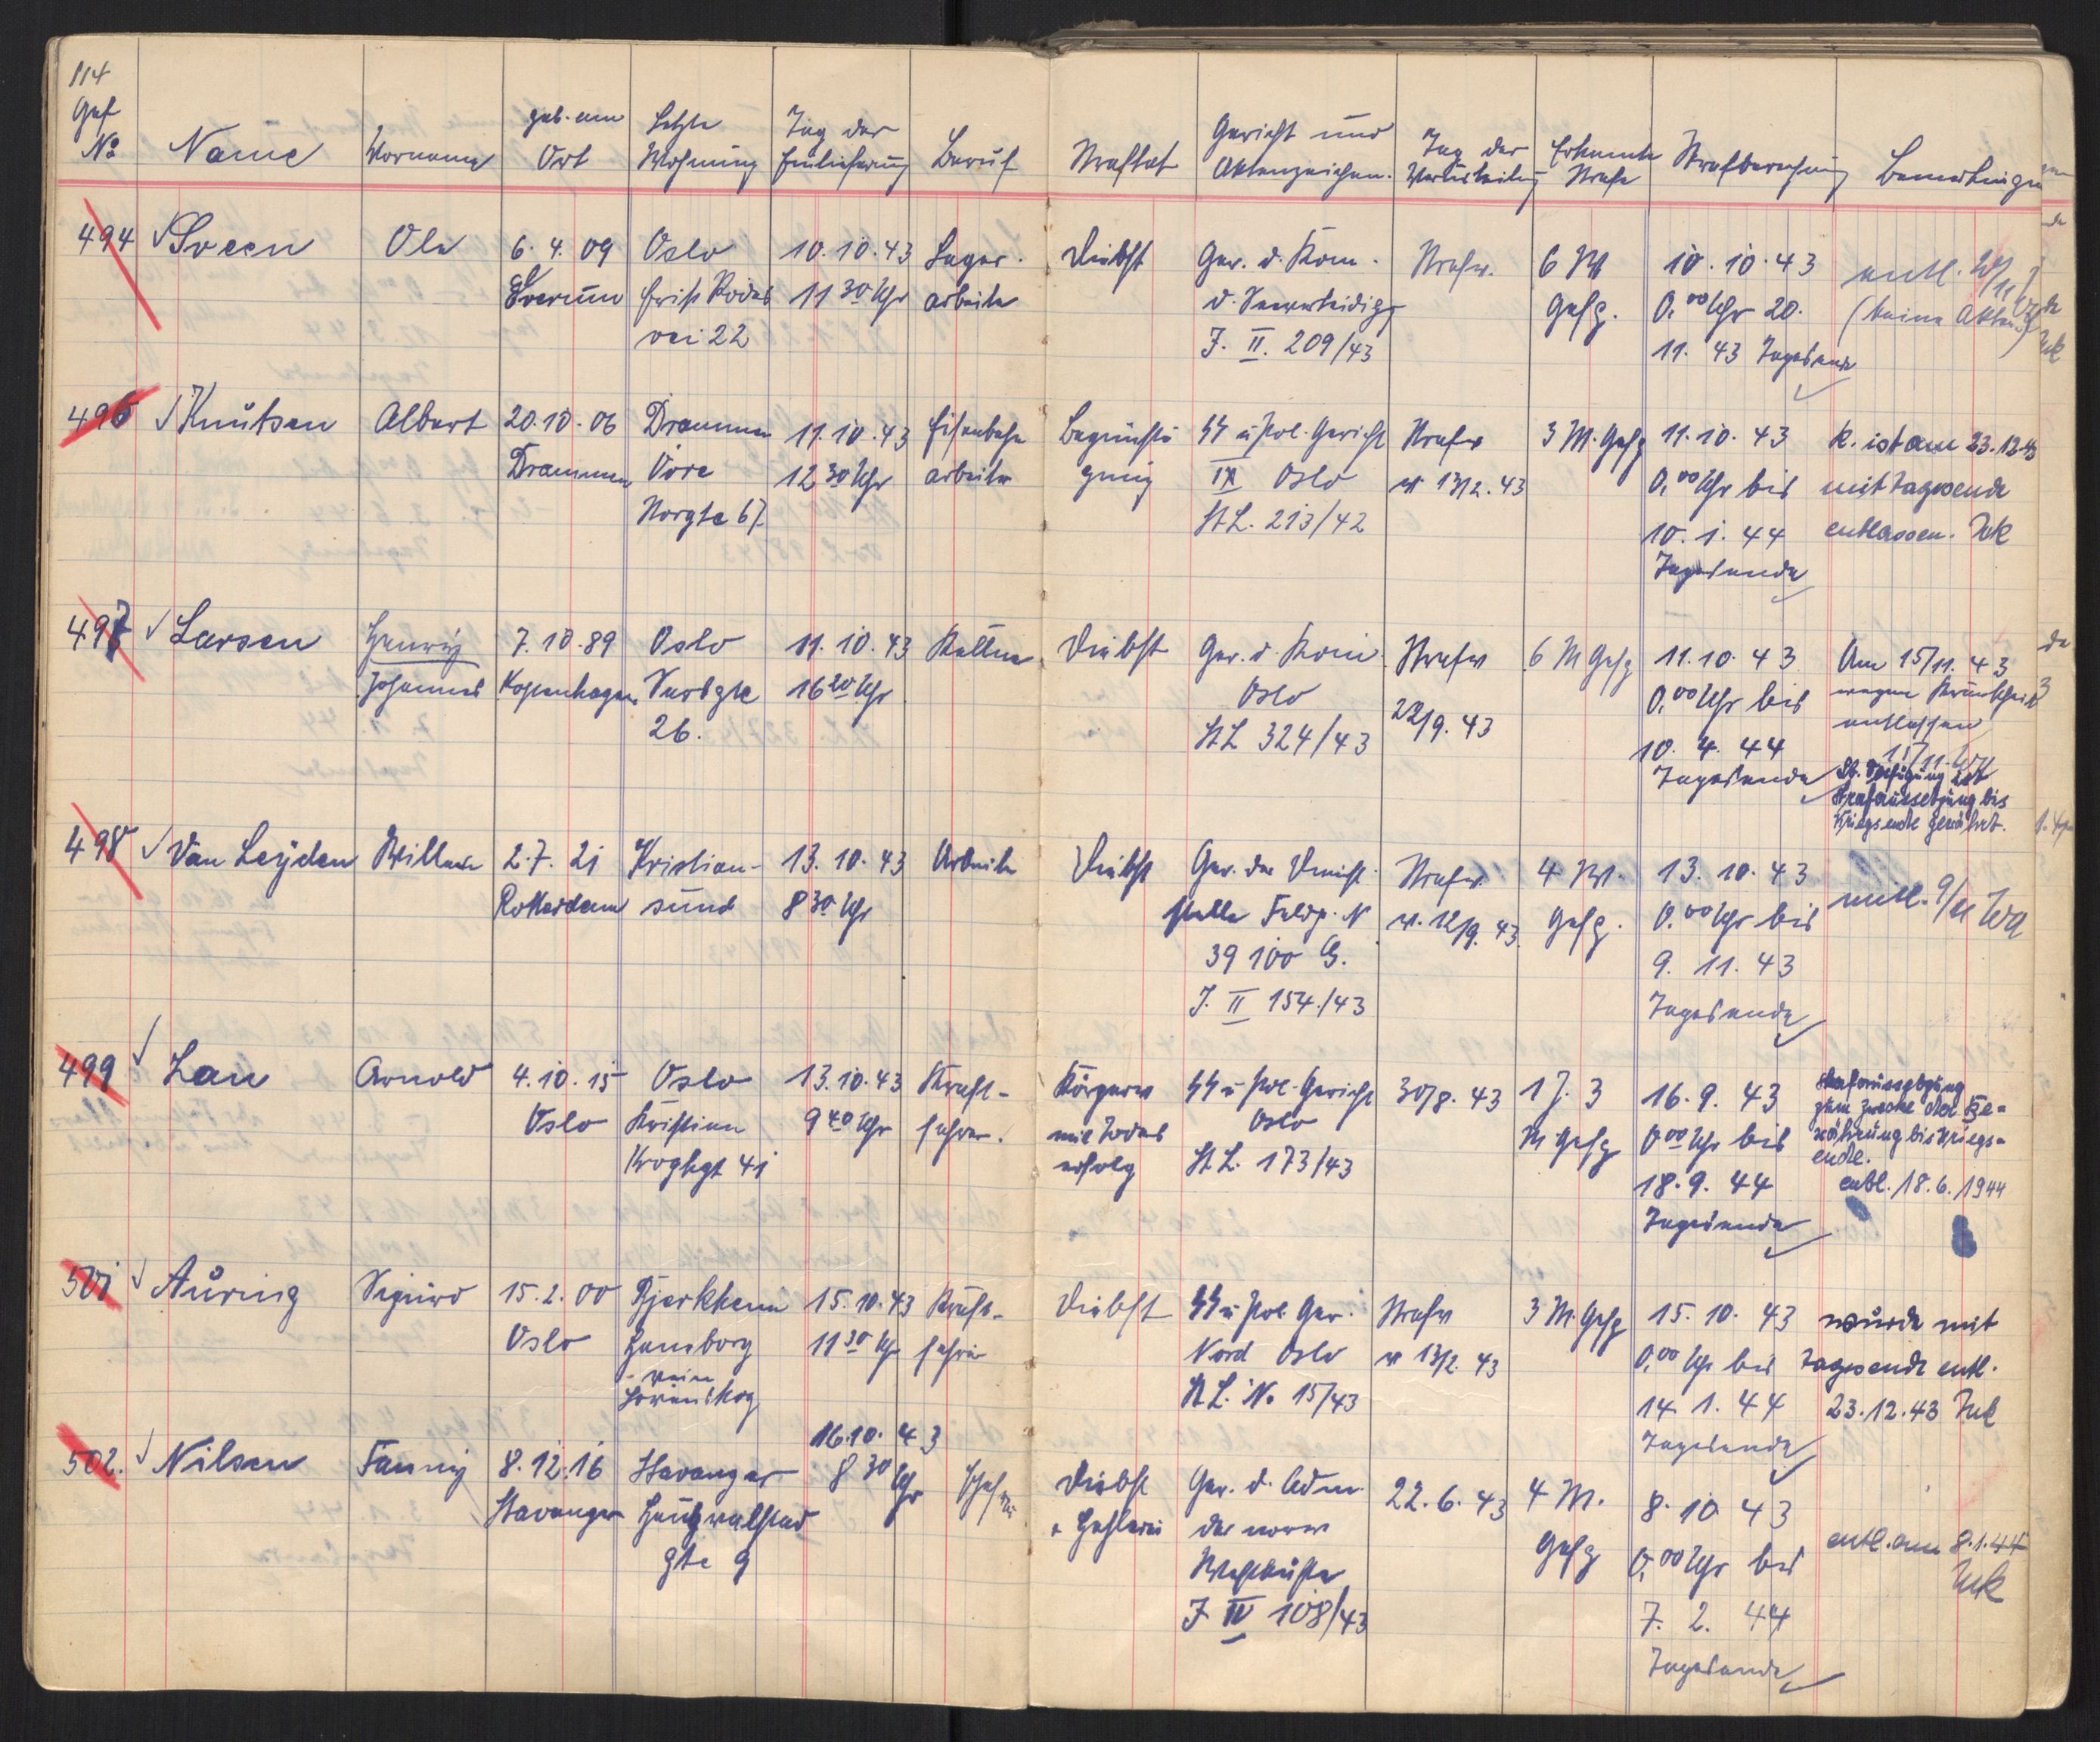 114
Gef
No
Name
Vorname
geb. am
Ort
Letzte
Wohnung
Tag der
Einlieferung
Beruf
Straftat
Gericht und
Aktenzeichen.
Tag der
Verurteilung
Erkannte
Strafe
Strafberechnung
Bemerkungen
494
Sveen
Ole
6. 4. 09
Oslo
vei 22
10.10.43
11 30 Uhr
Lager-
arbeiter
Diebst
Ger. d. Kom.
d.
J. II. 209/43
Strafv.
6 W
Gefg.
10.10.43
0,00 Uhr 20.
11. 43 Tagesende
entl.
(keine Akten)
496
Knutsen
Albert
20.10.06
Drammen
Drammen
Övre
Storgte 67
11.10.43
12 30 Uhr
Eisenbahn
arbeiter
Begünsti
gung
SS u Pol. Gericht
IX Oslo
St.L. 213/42
Strafv
v. 13/2.43
3 M. Gefg
11.10.43
0,00 Uhr bis
10. 1. 44
Tagesende
K. ist am 23.12.43
mit Tagesende
entlassen.
497
Larsen
Henry
Johannes
7.10.89
Kopenhagen
Oslo
26.
11.10.43
16 20 Uhr
Kellner
Diebst
Ger. d. Kom.
Oslo
St L 324/43
Strafv
22/9.43
6 M Gefg
11.10.43
0,00 Uhr bis
10. 4. 44
Tagesende
Am 15/11.43
wegen Krankheit
entlassen
Lt. Verfügung ist
Strafaussetzung bis
Kriegsende gewährt.
498
Van Leyden
Willem
2.7.21
Rotterdam
Kristian-
sund
13.10.43
8 30 Uhr
Arbeiter
Diebst
Ger. der Dienst-
stelle Feldp. N
39 100 G.
J. II 154/43
Strafv.
v. 12/9.43
4 W.
Gefg.
13.10.43
0,00 Uhr bis
9. 11. 43
Tagesende
entl. 9/11
499
Lau
Arnold
4.10.15
Oslo
Oslo
Kristian
Kroghgt 41
13.10.43
9 40 Uhr
Kraft-
fahrer.
Körperv
mit Todes
erfolg
SS u Pol. Gericht
Oslo
St L. 173/43
30/8.43
1 J. 3
M Gefg
16.9.43
0,00 Uhr bis
18.9.44
Tagesende
Strafaussetzung
zum Zwecke der Be-
währung bis Kriegs-
ende.
entl. 18.6.1944
501
Auring
Sigurd
15.2.00
Oslo
Bjerkheim
vein
Lörenskog
15.10.43
11 30 Uhr
Kraft-
fahrer
Diebst
SS u Pol. Ger.
Nord Oslo
St L. No 15/43
Strafv
v 13/2.43
3 M. Gefg
15.10.43
0,00 Uhr bis
14. 1. 44
Tagesende
wurde mit
Tagesende entl.
23.12.43
502.
Nilsen
Fanny
8.12.16
Stavanger
Stavanger
gte 9
16.10.43
8 30 Uhr
Diebst
+ Hehlerei
Ger. d. Adm.
der norw
Westküste
J IV 108/43
22.6.43
4 M.
Gefg
8.10 43
0,00 Uhr bis
7. 2. 44
Tagesende
entl. am 8.1.44